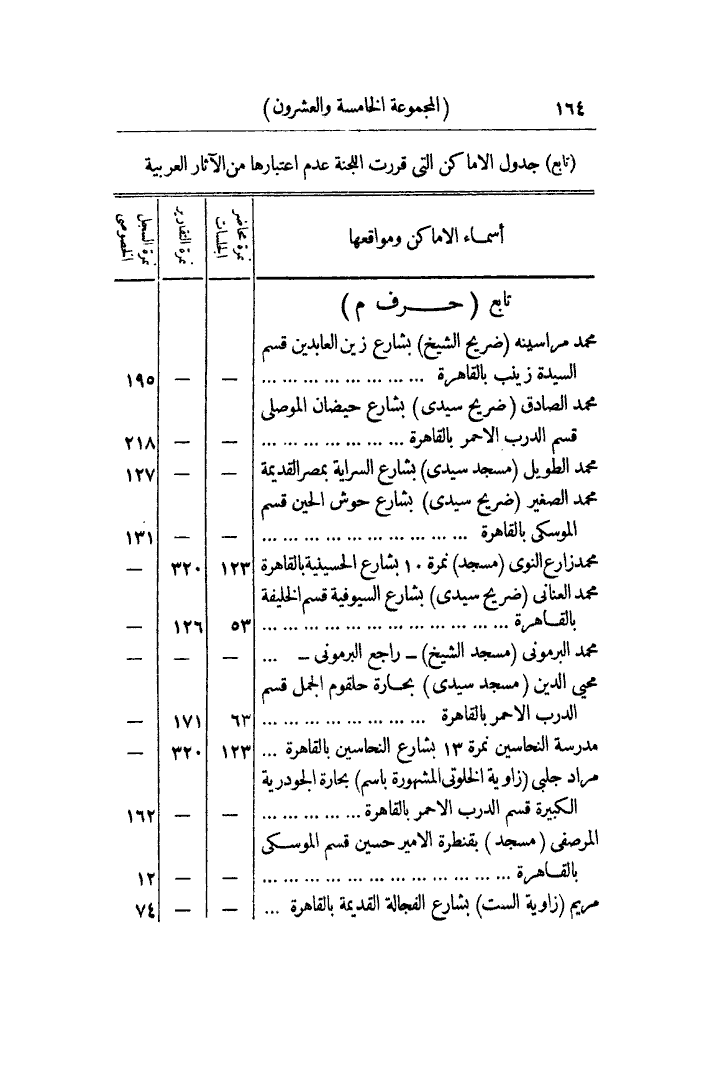 ١٦٤ (المجموعة الخامسة والعشرون)
(تابع) جدول الاماكن التى قررت اللجنة عدم اعتبارها من الآثار العربية
أسماء الاماكن ومواقعها | نمرة محاضر الجلسات | نمرة التقارير | نمرة السجل الخصوصى
تابع (حرف م)
محمد مراسينه (ضريح الشيخ) بشارع زين العابدين قسم
السيدة زينب بالقاهرة ... ... ... ... ... ... ... ... — — ١٩٥
محمد الصادق (ضريح سيدى) بشارع حيضان الموصلى
قسم الدرب الاحمر بالقاهرة ... ... ... ... ... ... ... — — ٢١٨
محمد الطويل (مسجد سيدى) بشارع السراية بمصر القديمة — — ١٢٧
محمد الصغير (ضريح سيدى) بشارع حوش الحين قسم
الموسكى بالقاهرة ... ... ... ... ... ... ... ... ... ... — — ١٣١
محمد زارع النوى (مسجد) نمرة ١٠ بشارع الحسينية بالقاهرة ١٢٣ ٣٢٠ —
محمد العنانى (ضريح سيدى) بشارع السيوفية قسم الخليفة
بالقاهرة ... ... ... ... ... ... ... ... ... ... ... ... ٥٣ ١٢٦ —
محمد البرمونى (مسجد الشيخ) — راجع البرمونى — ... — — —
محيى الدين (مسجد سيدى) بحارة حلقوم الجمل قسم
الدرب الاحمر بالقاهرة ... ... ... ... ... ... ... ... ٦٣ ١٧١ —
مدرسة النحاسين نمرة ١٣ بشارع النحاسين بالقاهرة ... ١٢٣ ٣٢٠ —
مراد جلبى (زاوية الخلوتى المشهورة باسم) بحارة الجودرية
الكبيرة قسم الدرب الاحمر بالقاهرة ... ... ... ... ... — — ١٦٢
المرصفى (مسجد) بقنطرة الامير حسين قسم الموسكى
بالقاهرة ... ... ... ... ... ... ... ... ... ... ... ... — — ١٢
مريم (زاوية الست) بشارع الفجالة القديمة بالقاهرة ... — — ٧٤